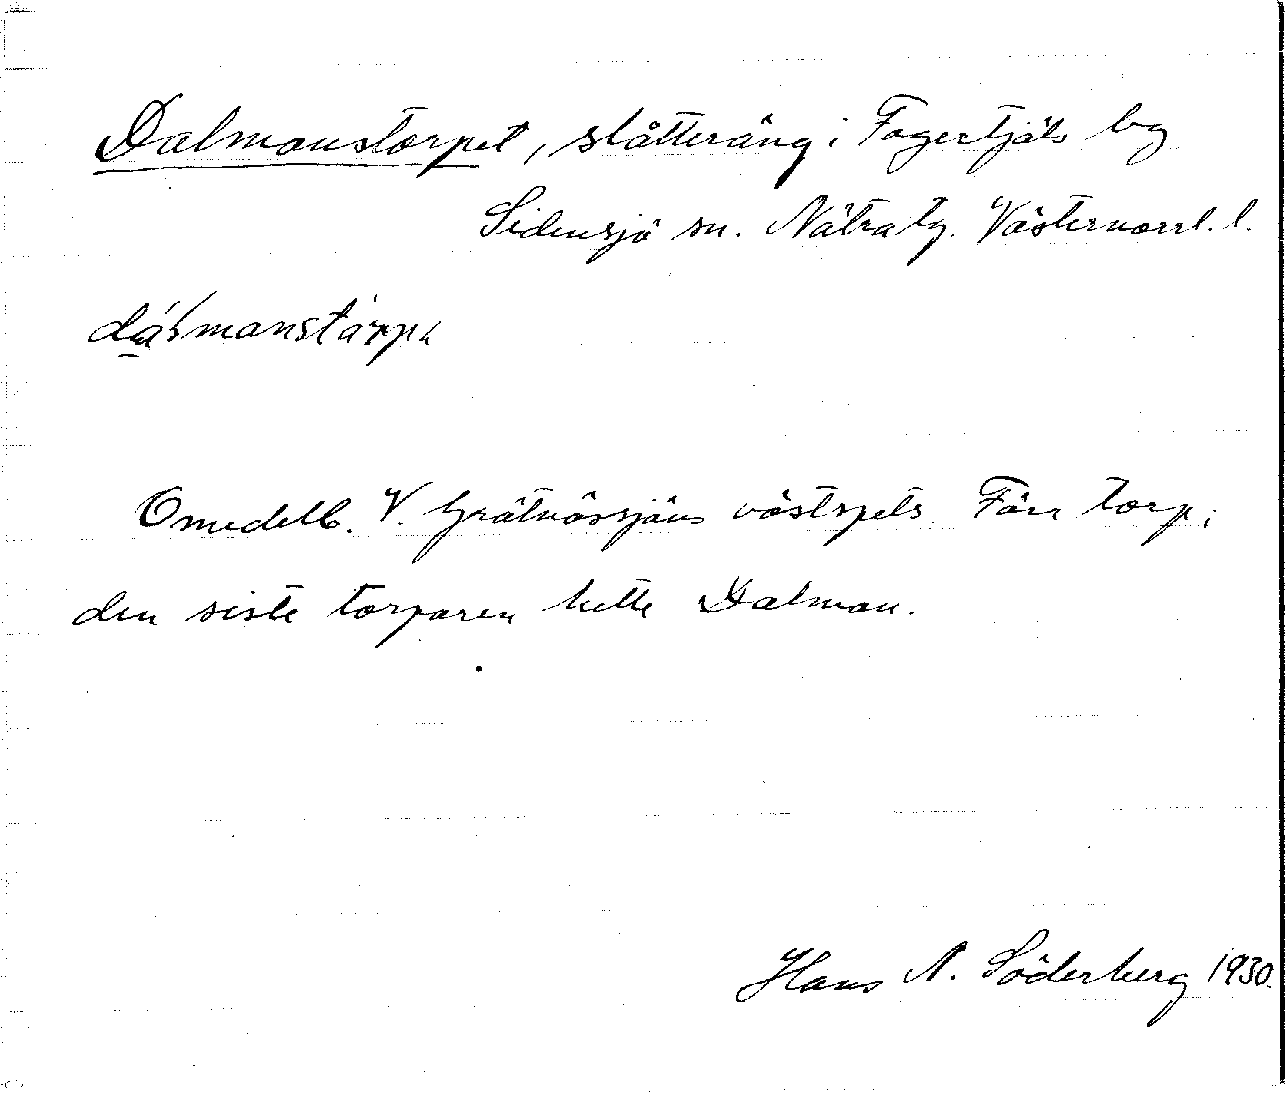 Dalmanstorpet, slåtteräng i Fagertjäls by
Sidensjö sn. Nätra tg. Västernorrl. l.
dálmanstàrpe
Omedelb. V. Grätnässjöns västspets. Förr torp;
den siste torparen hette Dalman.
Hans N. Söderberg 1930.